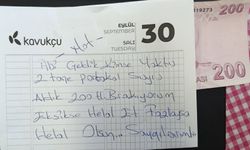 kavukçu
EYLÜL
SEPTEMBER
30
SALI
TUESDAY
Not
Abi Geldik Kimse Yoktu
2 tane portakal Suyu
Aldık 200 tl Bırakıyorum
Eksikse Helal Et Fazlaysa
Helal Olsun... Saygılarımla
200
200